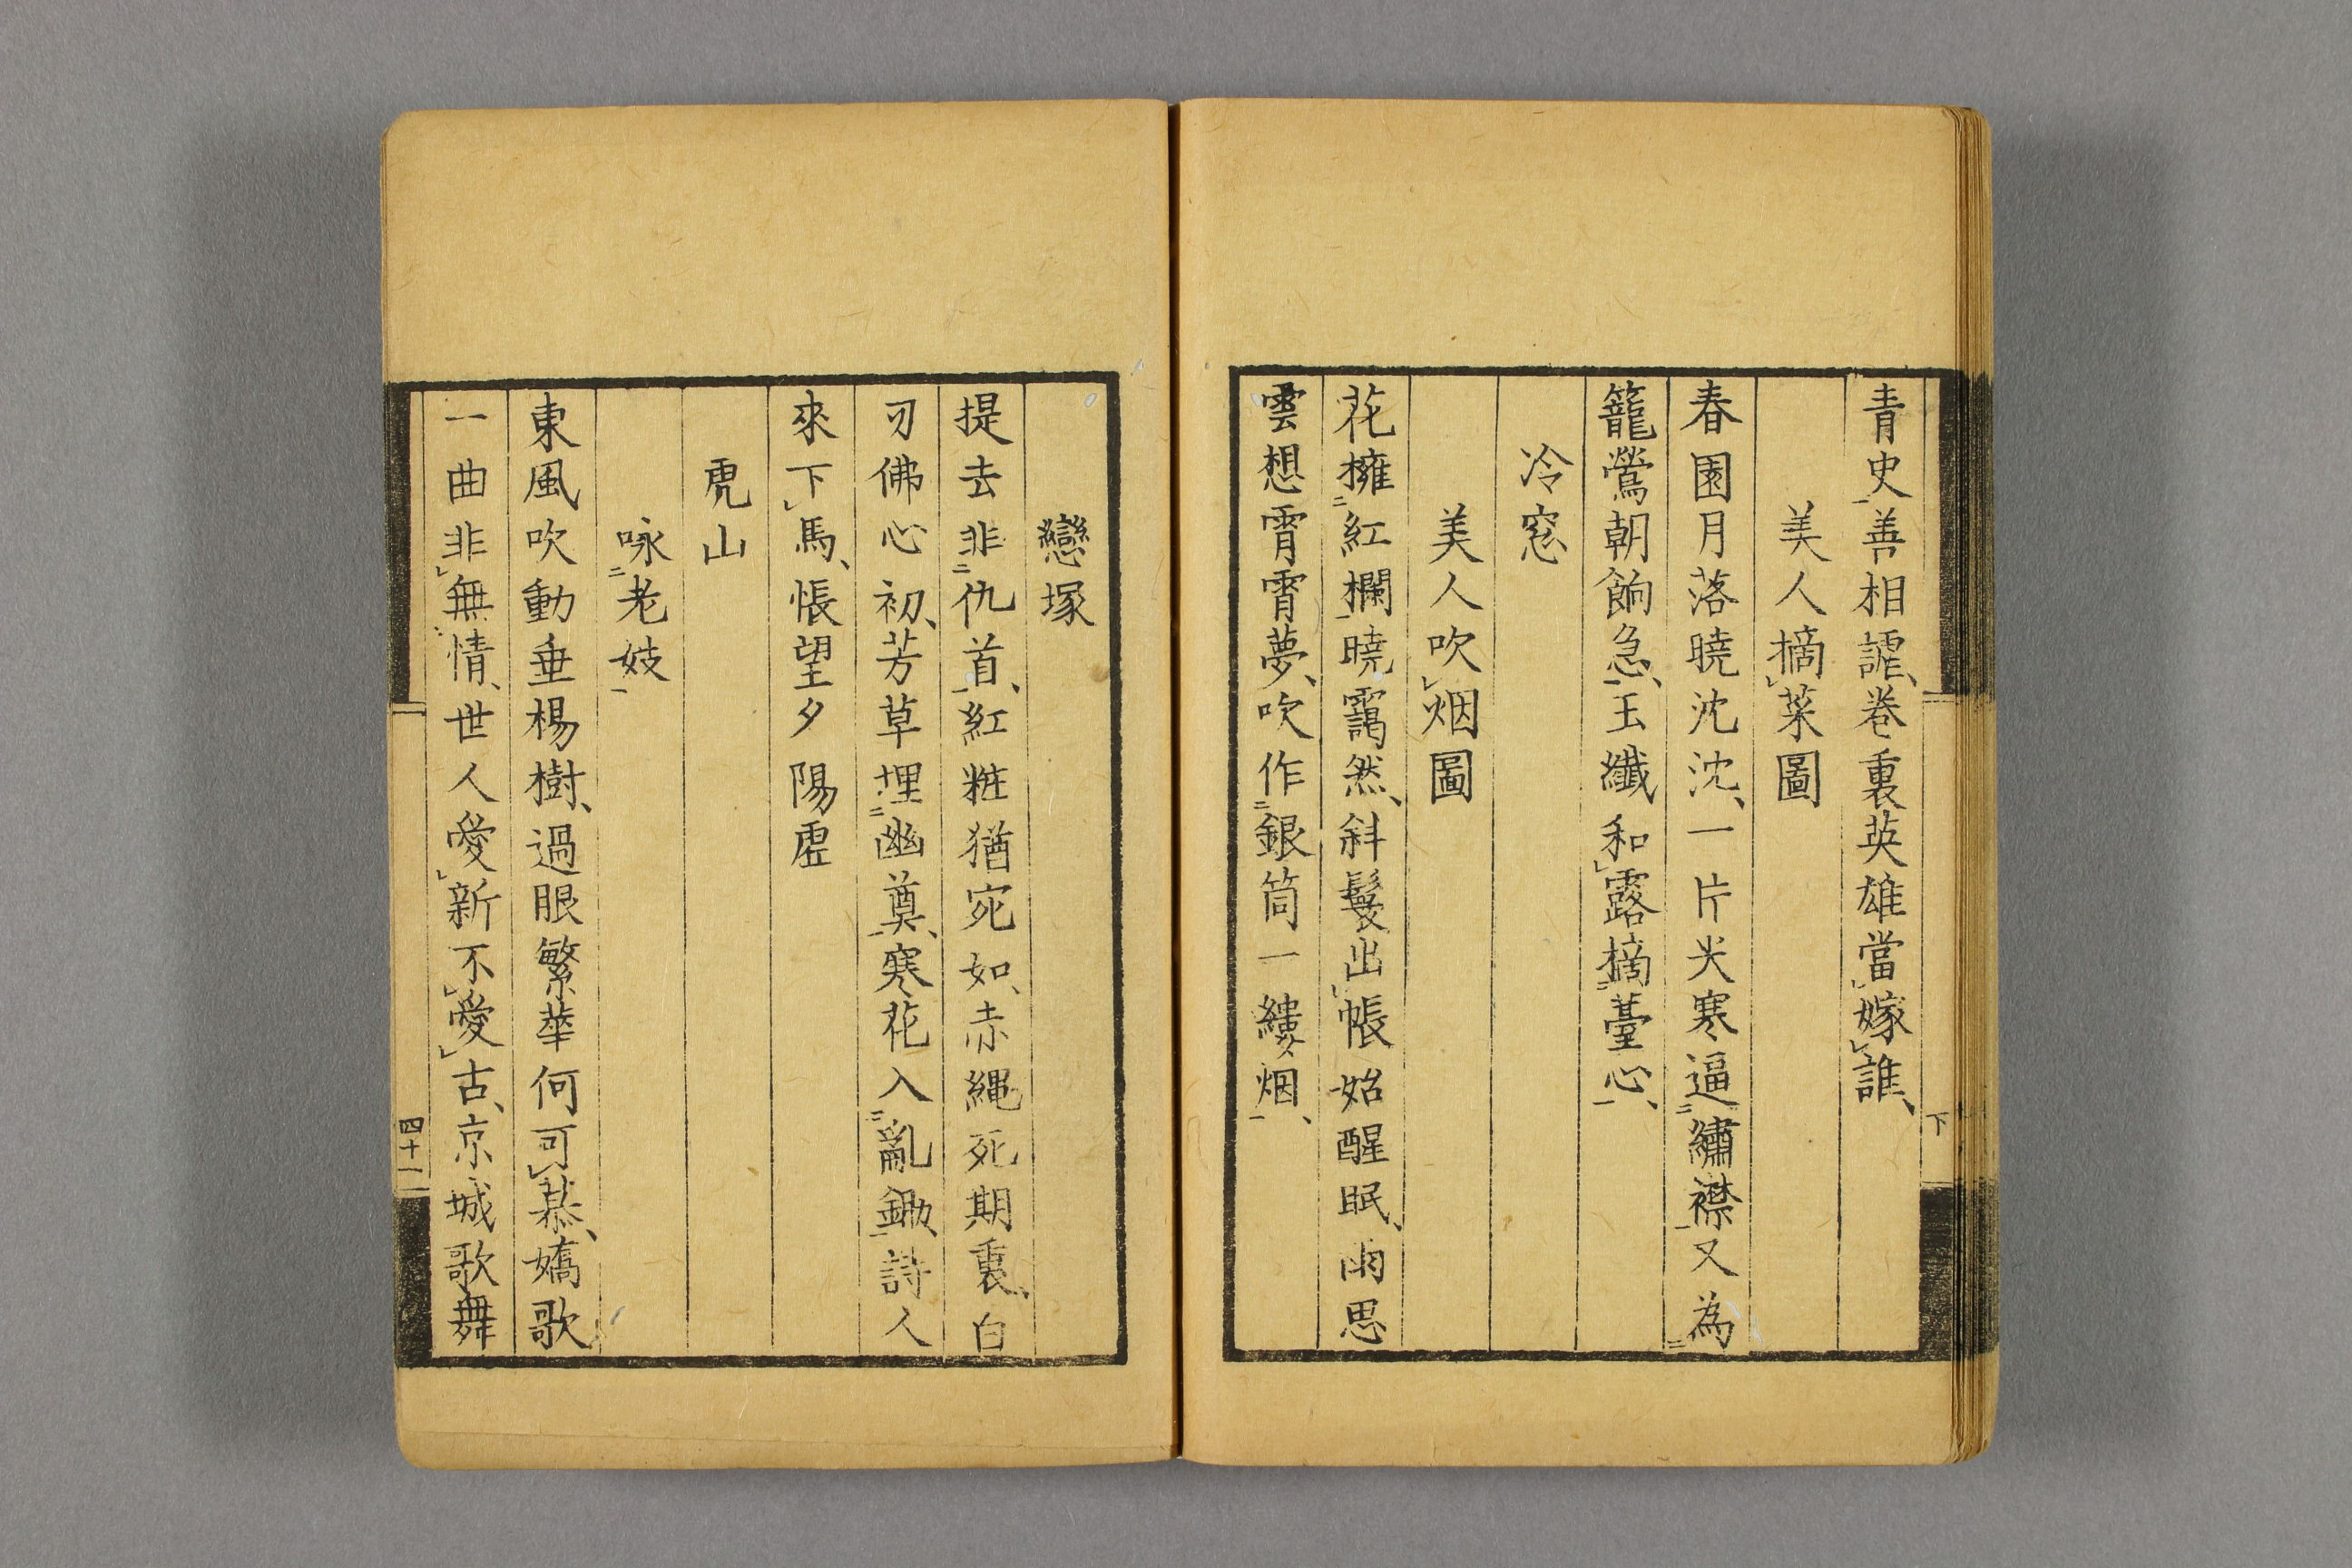 青史善相謔、卷裏英雄當嫁誰、
美人摘菜圖
春園月落曉沈沈、一片尖寒逼繡襟又為
籠鶯朝餉急、玉纖和露摘薹心、
冷窓
美人吹烟圖
花擁紅欄曉靄然、斜鬟出帳始醒眠、雨思
雲想霄霄夢、吹作銀筒一縷烟、
戀塚
提去非仇首、紅粧猶宛如、赤縄死期裏、白
刃佛心初、芳草埋幽奠、寒花入亂鋤、詩人
來下馬、悵望夕陽虛
虎山
咏老妓
東風吹動垂楊樹、過眼繁華何可慕、嬌歌
一曲非無情、世人愛新不愛古、京城歌舞
下
四十一